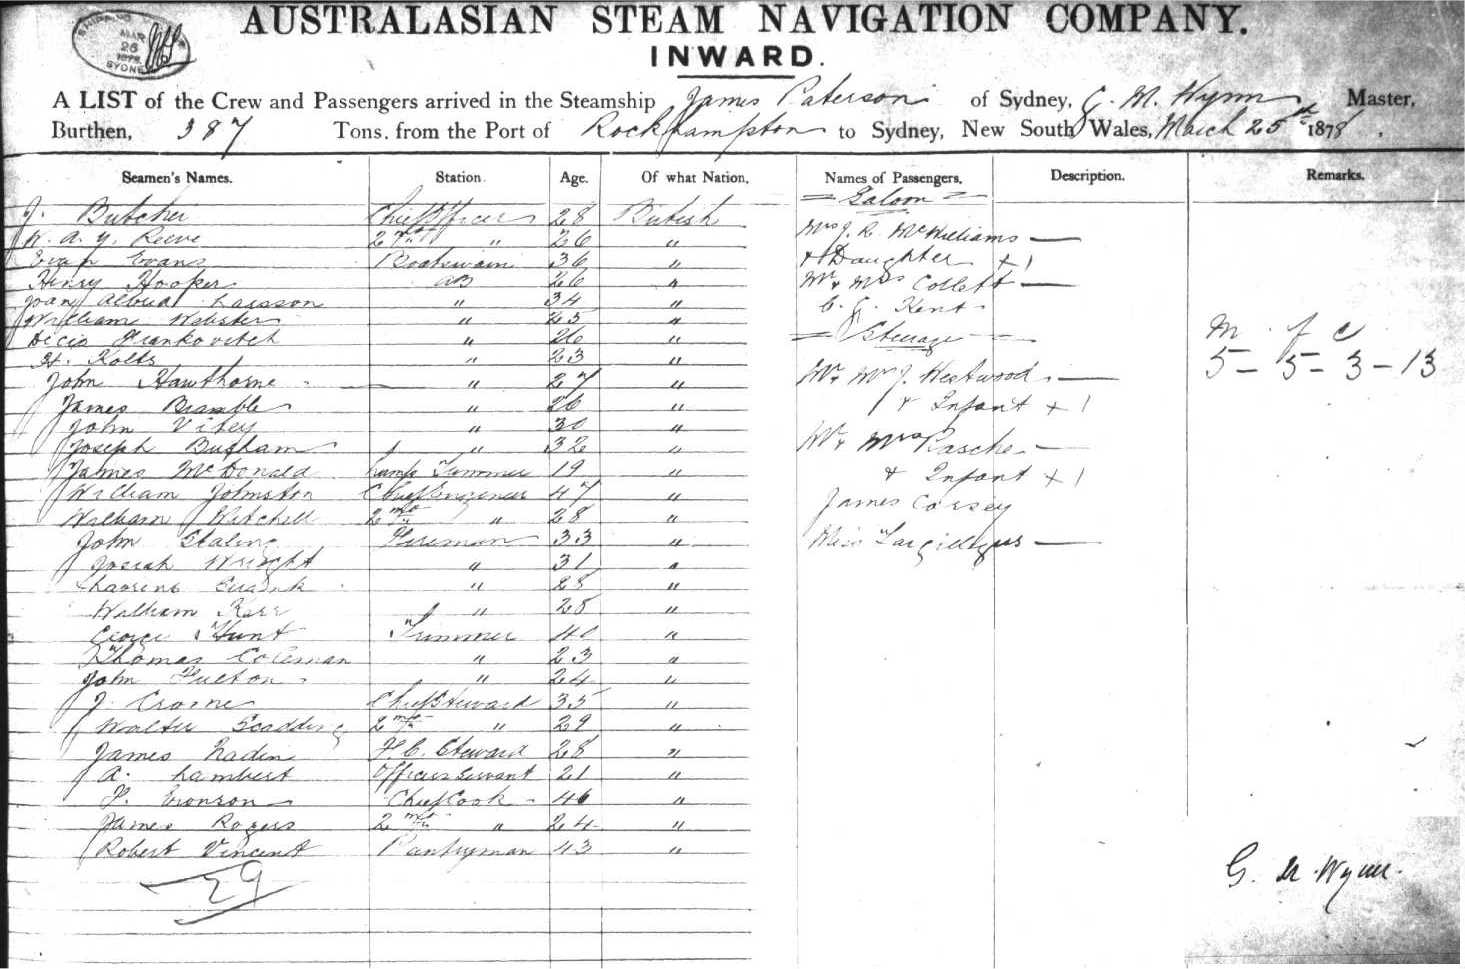 SHIPPING MASTERS
MAR
26
1878
SYDNEY
AUSTRALASIAN STEAM NAVIGATION COMPANY.
INWARD.
A LIST of the Crew and Passengers arrived in the Steamship James Paterson of Sydney, G. M. Wynn Master,
Burthen, 387 Tons, from the Port of Rockhampton to Sydney, New South Wales, March 25th 1878.
Seamen's Names. Station. Age. Of what Nation. Names of Passengers. Description. Remarks.
= Saloon =
J. Butcher Chief Officer 28 British
Mrs J. R. McWilliams —
W. A. Y. Reeve 2nd " 26 "
Evan Evans Boatswain 36 "
& Daughter +1
Henry Hooper AB 26 "
Mr & Mrs Collett —
Larsson " 34 "
C. G. Kent
William Webster " 25 "
Frankovitch " 26 "
= Steerage =
M. f c
H. Kolts " 23 "
5 – 5 – 3 – 13
John Hawthorne " 27 "
Mr & Mrs J. Westwood —
James Bramble " 26 "
& Infant + 1
John Vitey " 30 "
Joseph Butham " 32 "
Mr & Mrs Rasche —
James McDonald Lamp Trimmer 19 "
& Infant + 1
William Johnston Chief Engineer 47 "
James Corsey
William Mitchell 2nd " 28 "
John Fireman 33 "
Miss —
Josiah Wright " 31 "
" 28 "
William Kerr " 28 "
George Hunt Trimmer 40 "
Thomas Coleman " 23 "
John Fulton " 24 "
J. Crome Chief Steward 35 "
Walter Scadding 2nd " 29 "
James Nadin F. C. Steward 28 "
A. Lambert Officers Servant 21 "
F. Cronson Chief Cook 46 "
James Rogers 2nd " 24 "
Robert Vincent Pantryman 43 "
29
G. M. Wynn.